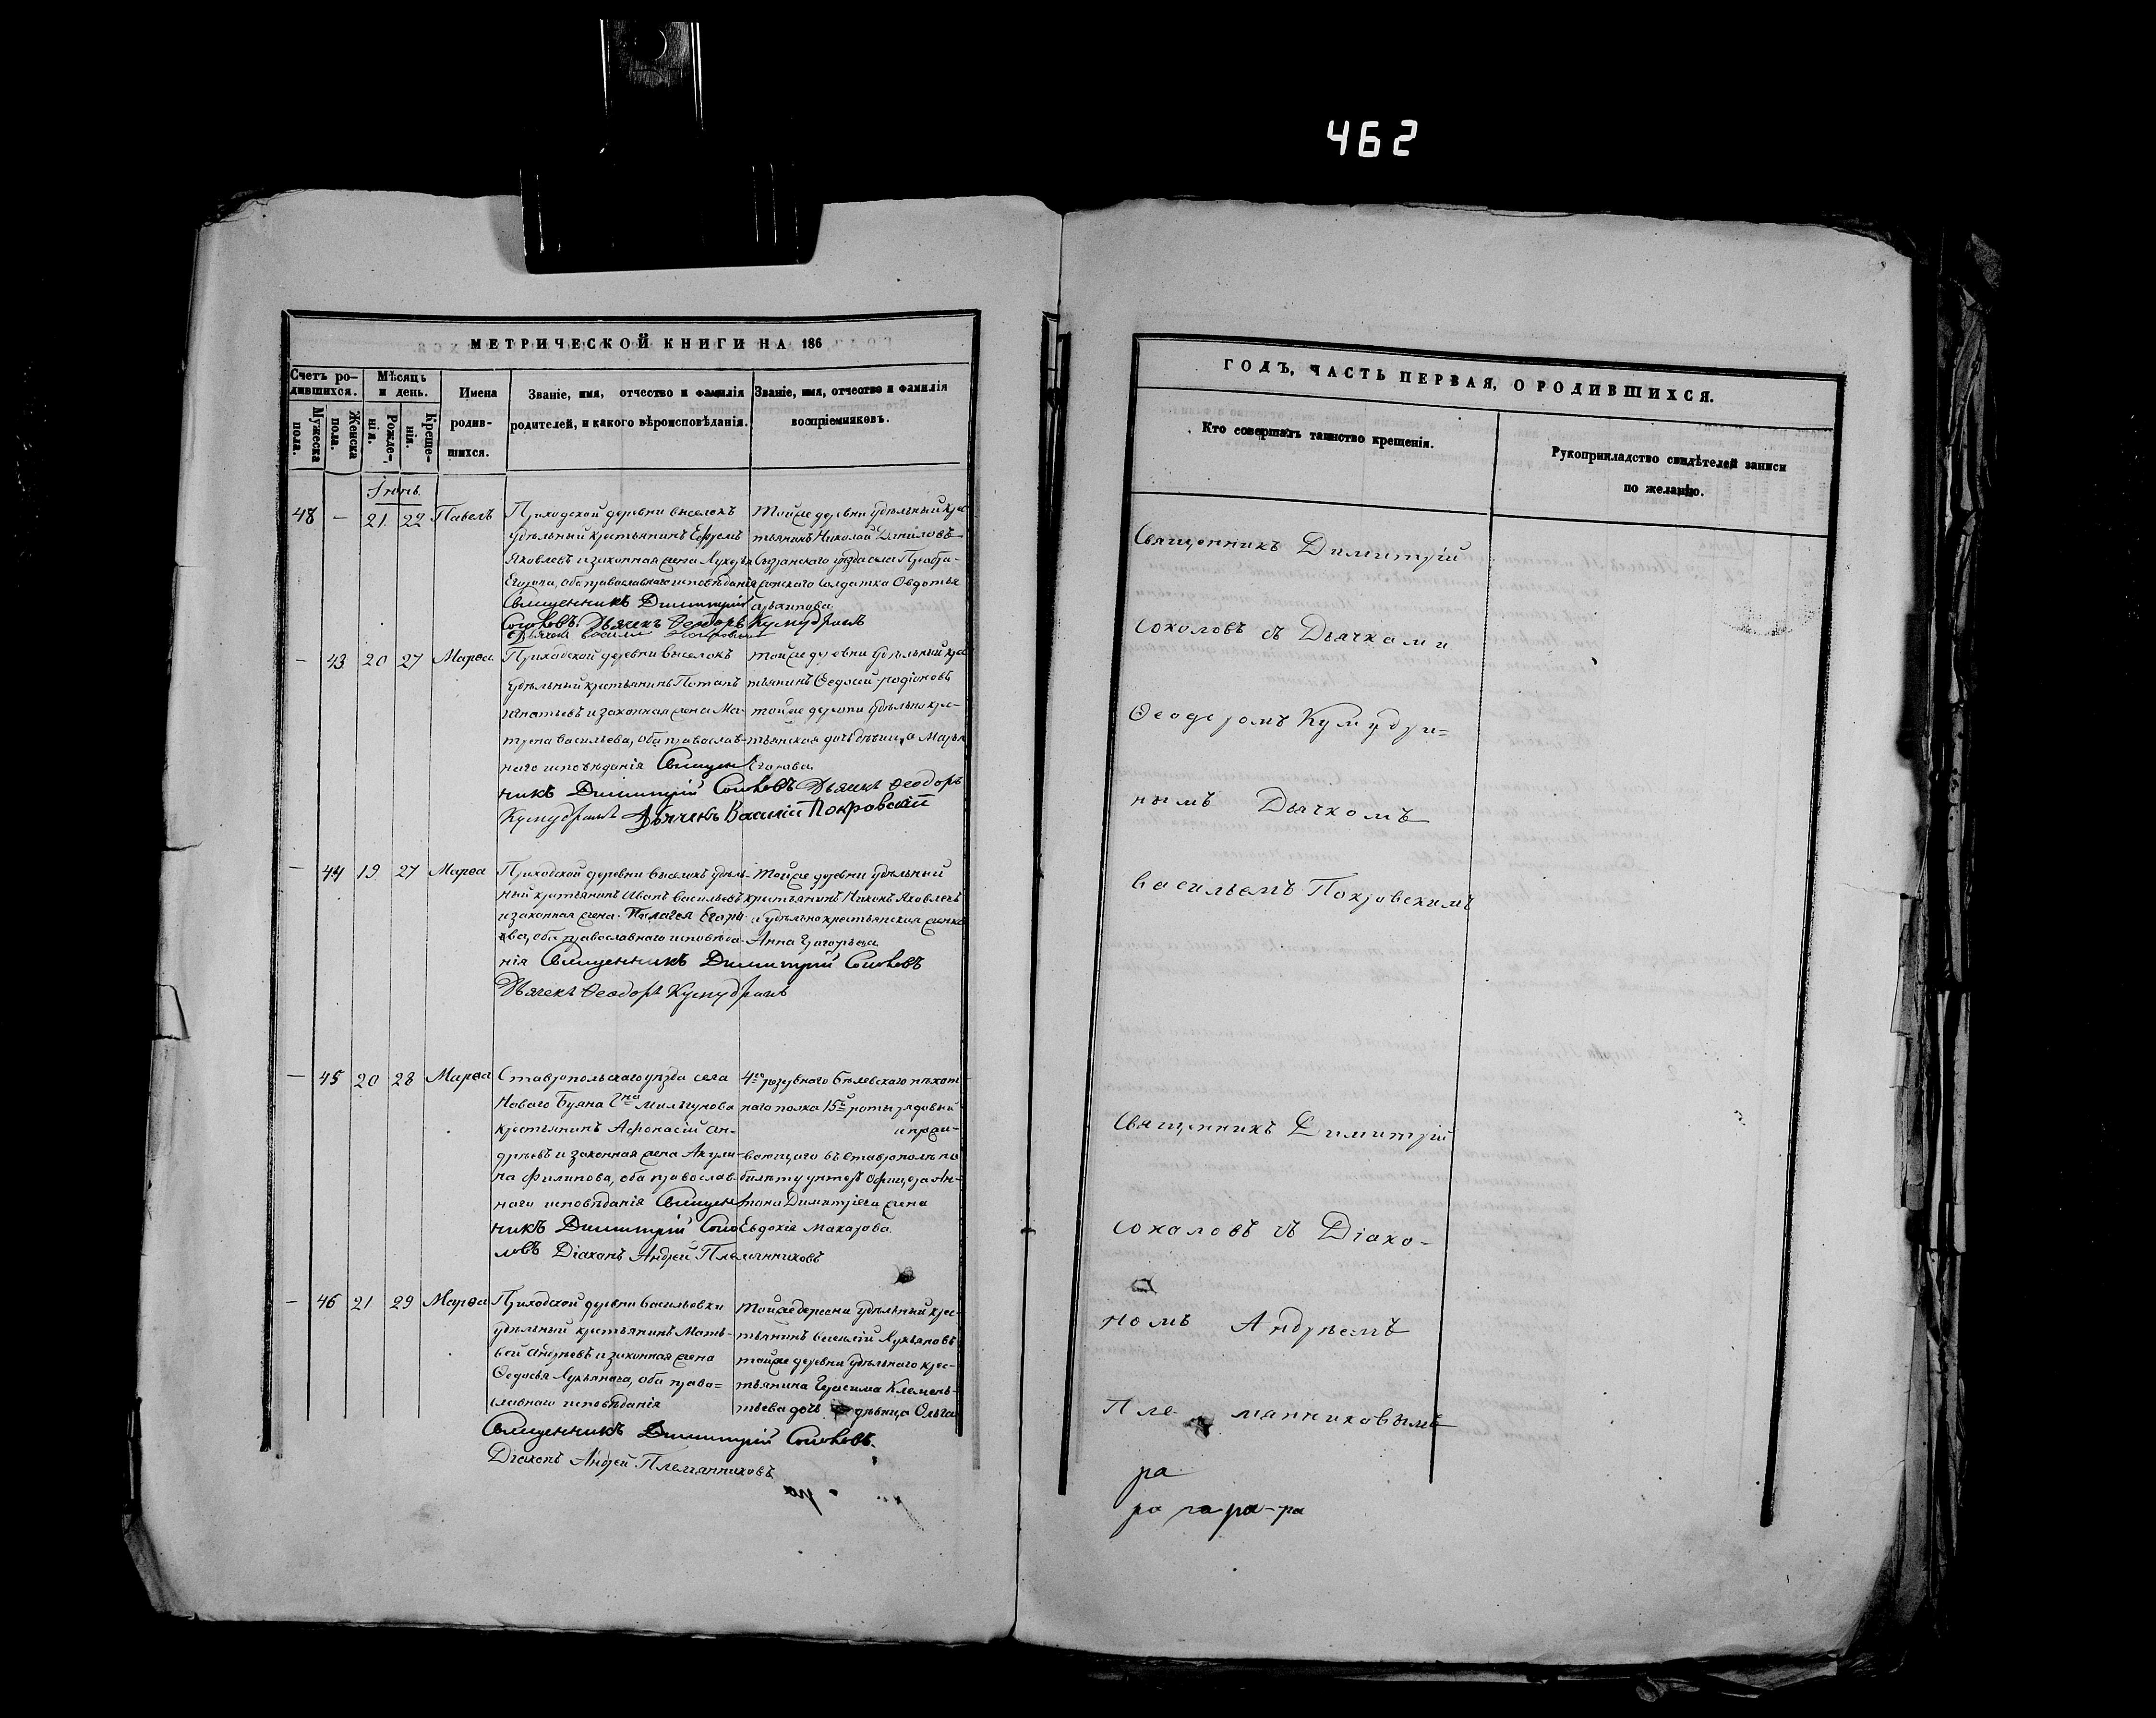 462
МЕТРИЧЕСКОЙ КНИГИ НА 186
Счетъ ро-
дившихся.
Мужеска пола.
Женска пола.
Мѣсяцъ
и день.
Рожде-
нія.
Креще-
нія.
Имена
родив-
шихся.
Званіе, имя, отчество и фамилія
родителей, и какого вѣроисповѣданія.
Званіе, имя, отчество и фамилія
воспріемниковъ.
Іюнь.
48 — 21 22 Павелъ
Приходской деревни выселокъ
удѣльный крестьянинъ Ефремъ
Яковлевъ и законная жена
Егорова, оба православнаго исповѣданія
Священникъ Димитрій
Соколовъ. Дьячекъ Ѳеодоръ Кумудринъ
Тойже деревни удѣльный крес
тьянинъ Николай Даниловъ
Сызранскаго уѣзда села Преобра-
женскаго Солдатка Овдотья
Архипова
— 43 20 27 Марѳа
Приходской деревни выселокъ
удѣльный крестьянинъ Потапъ
Игнатьевъ и законная жена Ма-
трена Васильева, оба православ-
наго исповѣданія Священ
никъ Димитрій Соколовъ Дьячекъ Ѳеодоръ
Кумудринъ Дьячекъ Василій Покровскій
тойже деревни удѣльный крес
тьянинъ Родіоновъ
тойже деревни удѣльно крес-
тьянская дочь дѣвица Марья
Егорова.
— 44 19 27 Марѳа
Приходской деревни выселокъ удѣль-
ный крестьянинъ Иванъ Васильевъ
и законная жена Пелагея Егоро-
ва, оба православнаго исповѣда-
нія Священникъ Димитрій Соколовъ
Дьячекъ Ѳеодоръ Кумудринъ
Тойже деревни удѣльный
крестьянинъ Никонъ Яковлевъ
и удѣльно крестьянская женка
Анна Григорьева
— 45 20 28 Марѳа
Ставропольскаго уѣзда села
Новаго Буяна Мельгунова
крестьянинъ Афонасій Ан-
дреевъ и законная жена Акули-
на Филипова, оба православ-
наго исповѣданія Священ
никъ Димитрій Соко
ловъ Діаконъ Андрей Племянниковъ
4го резервнаго Бѣлевскаго пѣхот
наго полка 15й роты рядовый
и прожи-
вающаго въ Ставрополѣ по
билету унтеръ офицера Ан-
тона Димитріева жена
Евдокія Макарова.
— 46 21 29 Марѳа
Приходской деревни Васильевки
удѣльный крестьянинъ Мать-
вей Андреевъ и законная жена
Ѳедосья Лукьянова, оба право=
славнаго исповѣданія
Священникъ Димитрій Соколовъ.
Діаконъ Андрей Племянниковъ
Тойже деревни удѣльный крес-
тьянинъ Василій Лукьяновъ
тойже деревни удѣльнаго крес-
тьянина Герасима Клемень-
тьева дочь дѣвица Ольга
ГОДЪ, ЧАСТЬ ПЕРВАЯ, О РОДИВШИХСЯ.
Кто совершалъ таинство крещенія.
Рукоприкладство свидѣтелей записи
по желанію.
Священникъ Димитрій
Соколовъ съ Дьячками
Ѳеодоромъ Кумудри=
нымъ Дьячкомъ
Васильемъ Покровскимъ
Священникъ Димитрій
Соколовъ съ Діако-
номъ Андреемъ
Племянниковымъ
ра
ра ра ра-ра